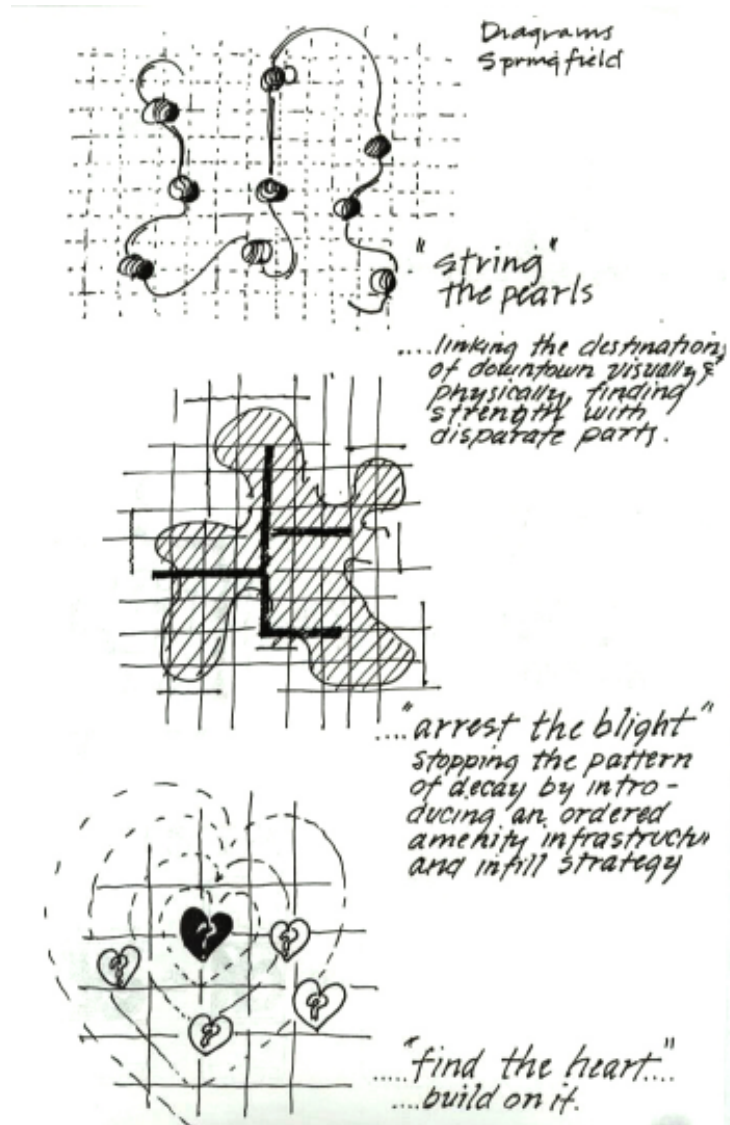 Diagrams
Springfield
"string"
the pearls
....linking the destination,
of downtown visually &
physically, finding
strength with
disparate parts.
...."arrest the blight"
stopping the pattern
of decay by intro-
ducing an ordered
amenity infrastructu
and infill strategy
....."find the heart"....
....build on it.